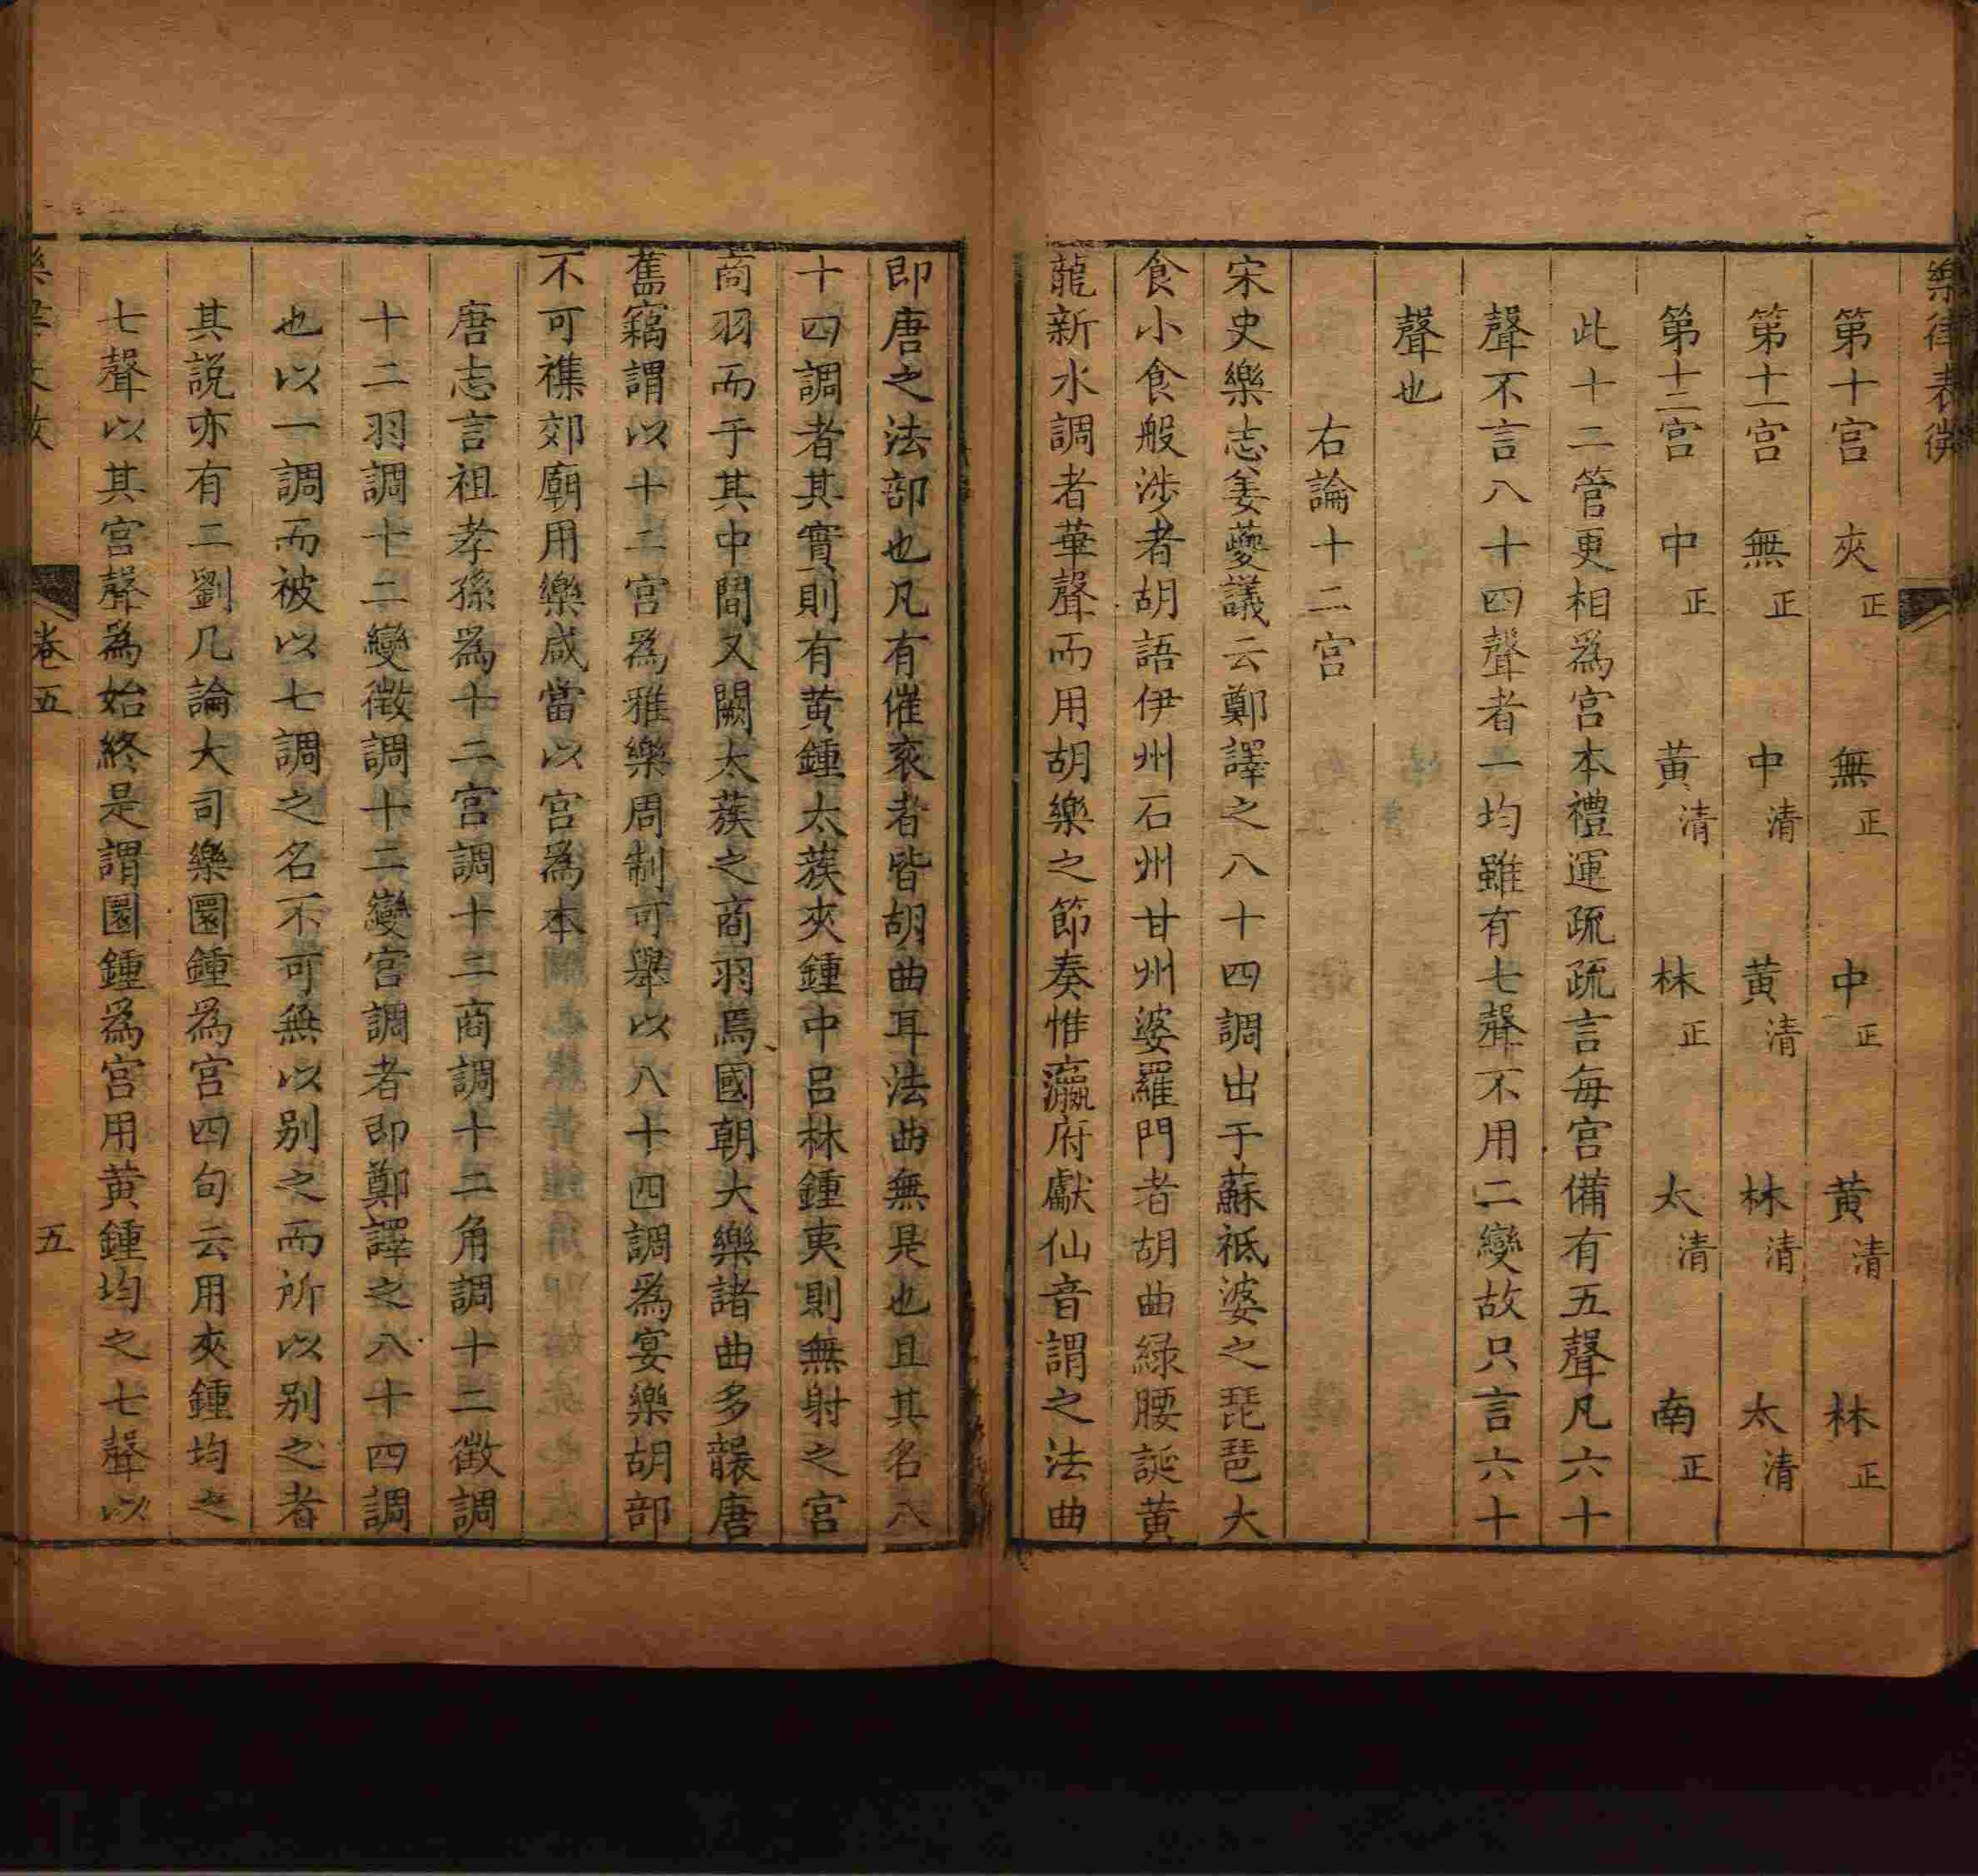 樂律表微
第十宮　夾正　無正　中正　黃清　林正
第十一宮　無正　中清　黃清　林清　太清
第十二宮　中正　黃清　林正　太清　南正
此十二管更相為宮本禮運疏疏言每宮備有五聲凡六十
聲不言八十四聲者一均雖有七聲不用二變故只言六十
聲也
右論十二宮
宋史樂志姜夔議云鄭譯之八十四調出于蘇祗婆之琵琶大
食小食般涉者胡語伊州石州甘州婆羅門者胡曲綠腰誕黃
龍新水調者華聲而用胡樂之節奏惟瀛府獻仙音謂之法曲
即唐之法部也凡有催衮者皆胡曲耳法曲無是也且其名八
十四調者其實則有黃鍾太蔟夾鍾中呂林鍾夷則無射之宮
商羽而于其中間又闕太蔟之商羽焉國朝大樂諸曲多襲唐
舊竊謂以十二宮為雅樂周制可舉以八十四調為宴樂胡部
不可襍郊廟用樂咸當以宮為本
唐志言祖孝孫為十二宮調十二商調十二角調十二徵調
十二羽調十二變徵調十二變宮調者即鄭譯之八十四調
也以一調而被以七調之名不可無以別之而所以別之者
其說亦有二劉几論大司樂圜鍾為宮四句云用夾鍾均之
七聲以其宮聲為始終是謂圜鍾為宮用黃鍾均之七聲以
卷五　五